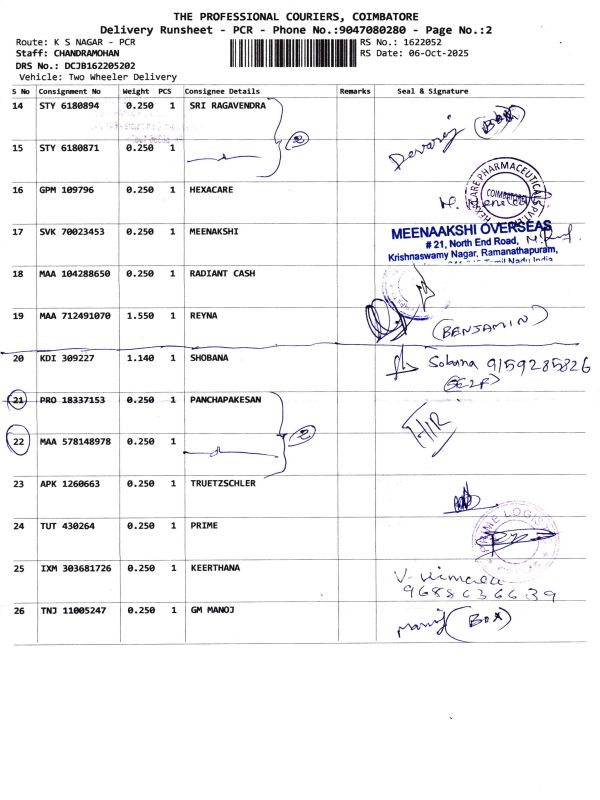 THE PROFESSIONAL COURIERS, COIMBATORE
Delivery Runsheet - PCR - Phone No.:9047080280 - Page No.:2
Route: K S NAGAR - PCR RS No.: 1622052
Staff: CHANDRAMOHAN RS Date: 06-Oct-2025
DRS No.: DCJB162205202
Vehicle: Two Wheeler Delivery
S No Consignment No Weight PCS Consignee Details Remarks Seal & Signature
14 STY 6180894 0.250 1 SRI RAGAVENDRA
Devaraj (Box)
15 STY 6180871 0.250 1 2
16 GPM 109796 0.250 1 HEXACARE
HEXACARE PHARMACEUTICALS PVT LTD COIMBATORE
17 SVK 70023453 0.250 1 MEENAKSHI
MEENAAKSHI OVERSEAS
# 21, North End Road,
Krishnaswamy Nagar, Ramanathapuram,
Tamil Nadu India
18 MAA 104288650 0.250 1 RADIANT CASH
19 MAA 712491070 1.550 1 REYNA
(BENJAMIN)
20 KDI 309227 1.140 1 SHOBANA
Sobana 9159285826
(SELF)
21 PRO 18337153 0.250 1 PANCHAPAKESAN
H/R
22 MAA 578148978 0.250 1 2
23 APK 1260663 0.250 1 TRUETZSCHLER
24 TUT 430264 0.250 1 PRIME
PRIME LOGIS
25 IXM 303681726 0.250 1 KEERTHANA
V. Vimala
9688636639
26 TNJ 11005247 0.250 1 GM MANOJ
Manoj (Box)